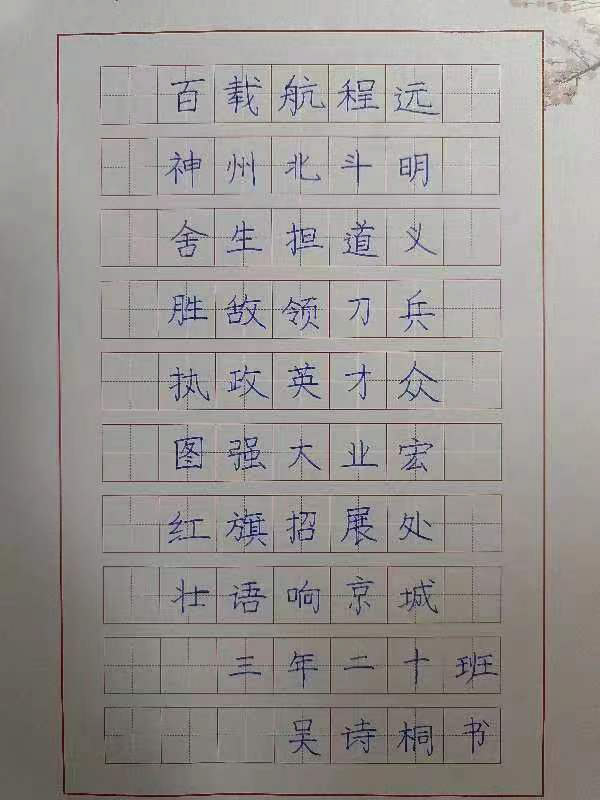 百载航程远
神州北斗明
舍生担道义
胜敌领刀兵
执政英才众
图强大业宏
红旗招展处
壮语响京城
三年二十班
吴诗桐书